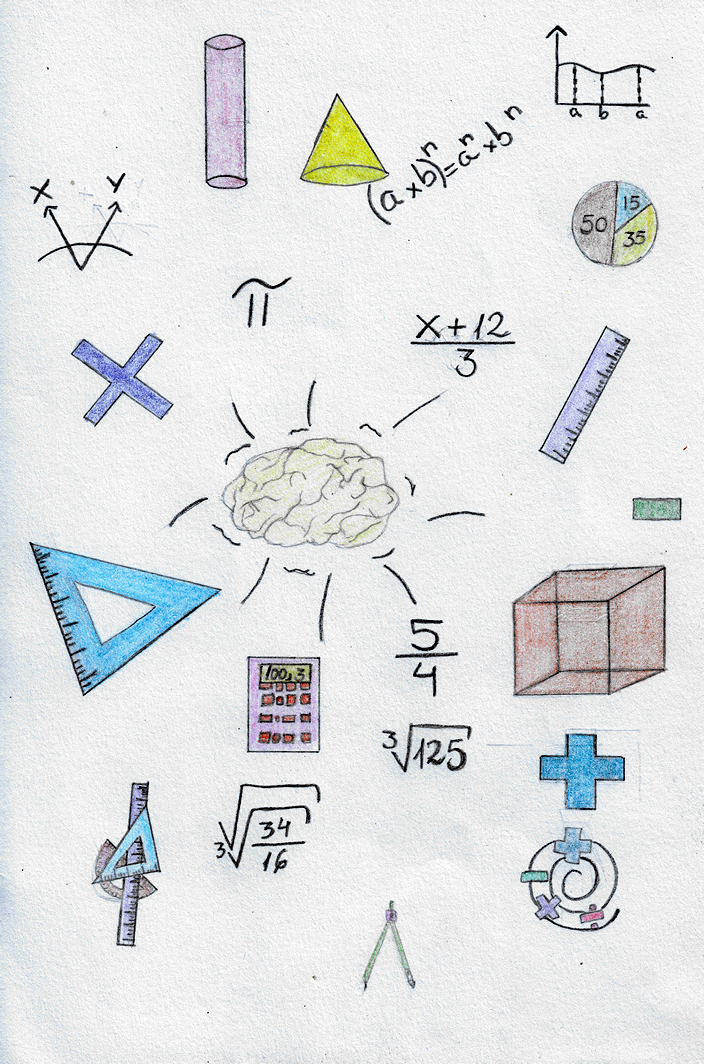 a b a
(a×b)ⁿ=aⁿ×bⁿ
X Y
50 15
35
π
x+12
3
5
4
100,3
³√125
³√√34
16